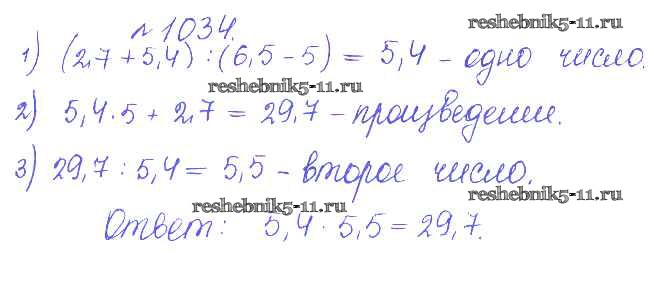 № 1034.
reshebnik5-11.ru
1) (2,7 + 5,4) : (6,5 - 5) = 5,4 - одно число.
reshebnik5-11.ru
2) 5,4 · 5 + 2,7 = 29,7 - произведении.
3) 29,7 : 5,4 = 5,5 - второе число.
reshebnik5-11.ru
reshebnik5-11.ru
Ответ: 5,4 · 5,5 = 29,7.